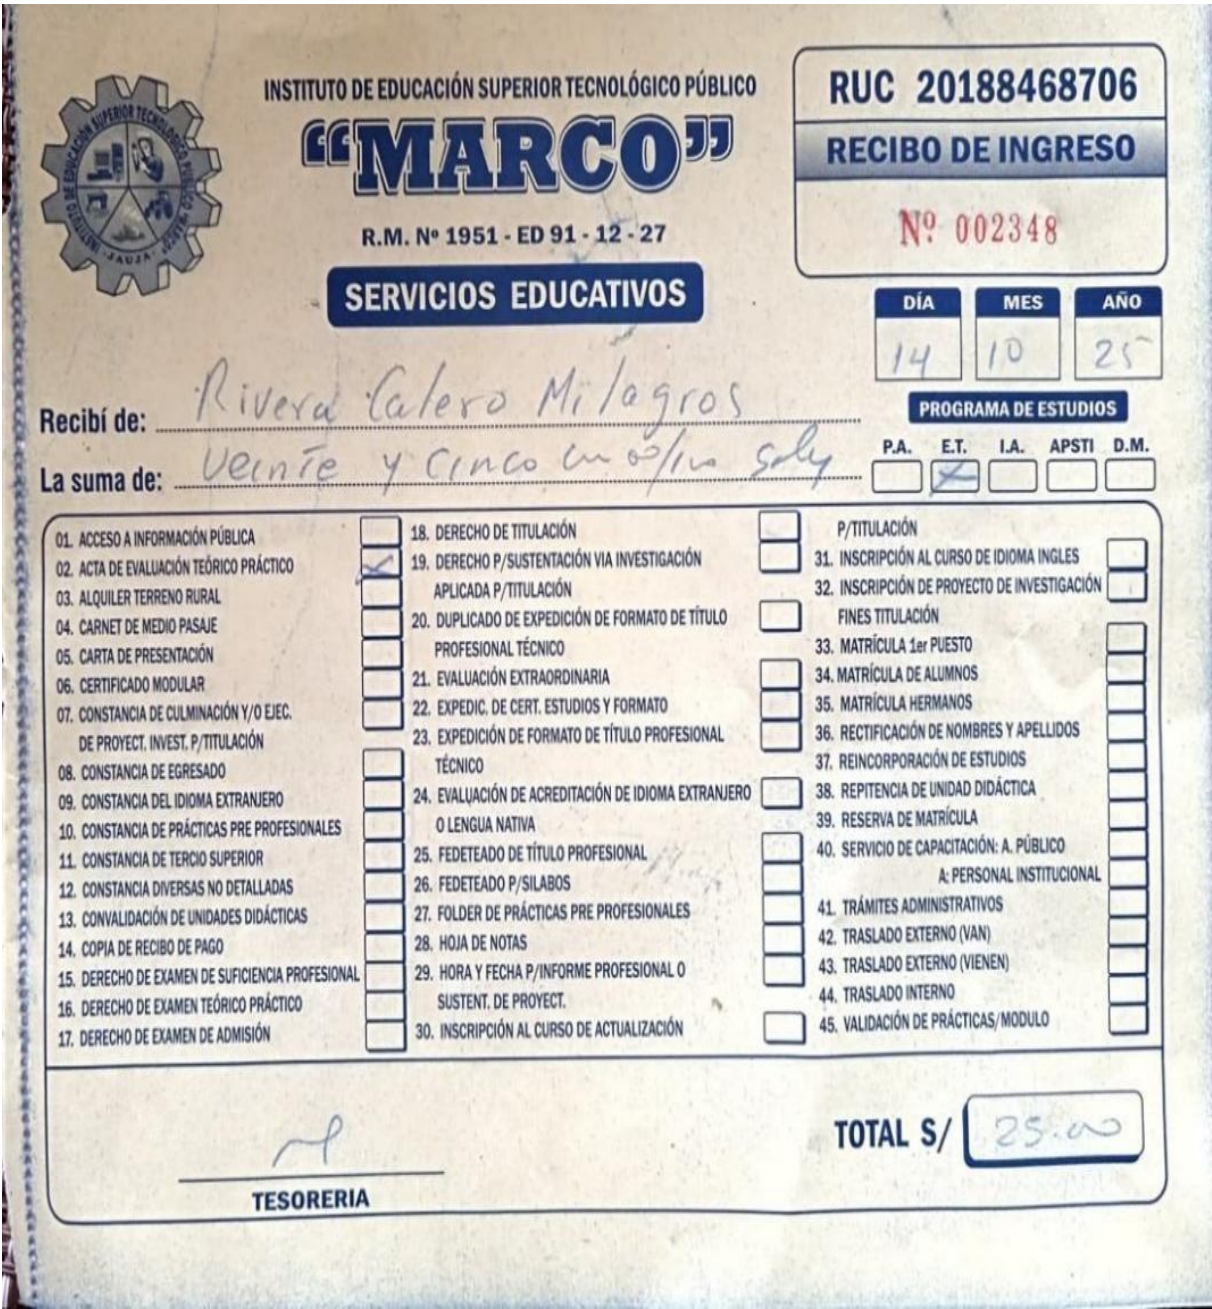 INSTITUTO DE EDUCACIÓN SUPERIOR TECNOLÓGICO PÚBLICO
“MARCO”
R.M. Nº 1951 - ED 91 - 12 - 27
SERVICIOS EDUCATIVOS
INSTITUTO DE EDUCACIÓN SUPERIOR TECNOLÓGICO PÚBLICO "MARCO"
- JAUJA -
RUC 20188468706
RECIBO DE INGRESO
Nº 002348
DÍA MES AÑO
14 10 25
Recibí de: Rivera Calero Milagros
La suma de: Veinte y Cinco
PROGRAMA DE ESTUDIOS
P.A. E.T. I.A. APSTI D.M.
01. ACCESO A INFORMACIÓN PÚBLICA
02. ACTA DE EVALUACIÓN TEÓRICO PRÁCTICO
03. ALQUILER TERRENO RURAL
04. CARNET DE MEDIO PASAJE
05. CARTA DE PRESENTACIÓN
06. CERTIFICADO MODULAR
07. CONSTANCIA DE CULMINACIÓN Y/O EJEC.
DE PROYECT. INVEST. P/TITULACIÓN
08. CONSTANCIA DE EGRESADO
09. CONSTANCIA DEL IDIOMA EXTRANJERO
10. CONSTANCIA DE PRÁCTICAS PRE PROFESIONALES
11. CONSTANCIA DE TERCIO SUPERIOR
12. CONSTANCIA DIVERSAS NO DETALLADAS
13. CONVALIDACIÓN DE UNIDADES DIDÁCTICAS
14. COPIA DE RECIBO DE PAGO
15. DERECHO DE EXAMEN DE SUFICIENCIA PROFESIONAL
16. DERECHO DE EXAMEN TEÓRICO PRÁCTICO
17. DERECHO DE EXAMEN DE ADMISIÓN
18. DERECHO DE TITULACIÓN
19. DERECHO P/SUSTENTACIÓN VIA INVESTIGACIÓN
APLICADA P/TITULACIÓN
20. DUPLICADO DE EXPEDICIÓN DE FORMATO DE TÍTULO
PROFESIONAL TÉCNICO
21. EVALUACIÓN EXTRAORDINARIA
22. EXPEDIC. DE CERT. ESTUDIOS Y FORMATO
23. EXPEDICIÓN DE FORMATO DE TÍTULO PROFESIONAL
TÉCNICO
24. EVALUACIÓN DE ACREDITACIÓN DE IDIOMA EXTRANJERO
O LENGUA NATIVA
25. FEDETEADO DE TÍTULO PROFESIONAL
26. FEDETEADO P/SILABOS
27. FOLDER DE PRÁCTICAS PRE PROFESIONALES
28. HOJA DE NOTAS
29. HORA Y FECHA P/INFORME PROFESIONAL O
SUSTENT. DE PROYECT.
30. INSCRIPCIÓN AL CURSO DE ACTUALIZACIÓN
P/TITULACIÓN
31. INSCRIPCIÓN AL CURSO DE IDIOMA INGLES
32. INSCRIPCIÓN DE PROYECTO DE INVESTIGACIÓN
FINES TITULACIÓN
33. MATRÍCULA 1er PUESTO
34. MATRÍCULA DE ALUMNOS
35. MATRÍCULA HERMANOS
36. RECTIFICACIÓN DE NOMBRES Y APELLIDOS
37. REINCORPORACIÓN DE ESTUDIOS
38. REPITENCIA DE UNIDAD DIDÁCTICA
39. RESERVA DE MATRÍCULA
40. SERVICIO DE CAPACITACIÓN: A. PÚBLICO
A: PERSONAL INSTITUCIONAL
41. TRÁMITES ADMINISTRATIVOS
42. TRASLADO EXTERNO (VAN)
43. TRASLADO EXTERNO (VIENEN)
44. TRASLADO INTERNO
45. VALIDACIÓN DE PRÁCTICAS/MODULO
TESORERIA
TOTAL S/ 25.00